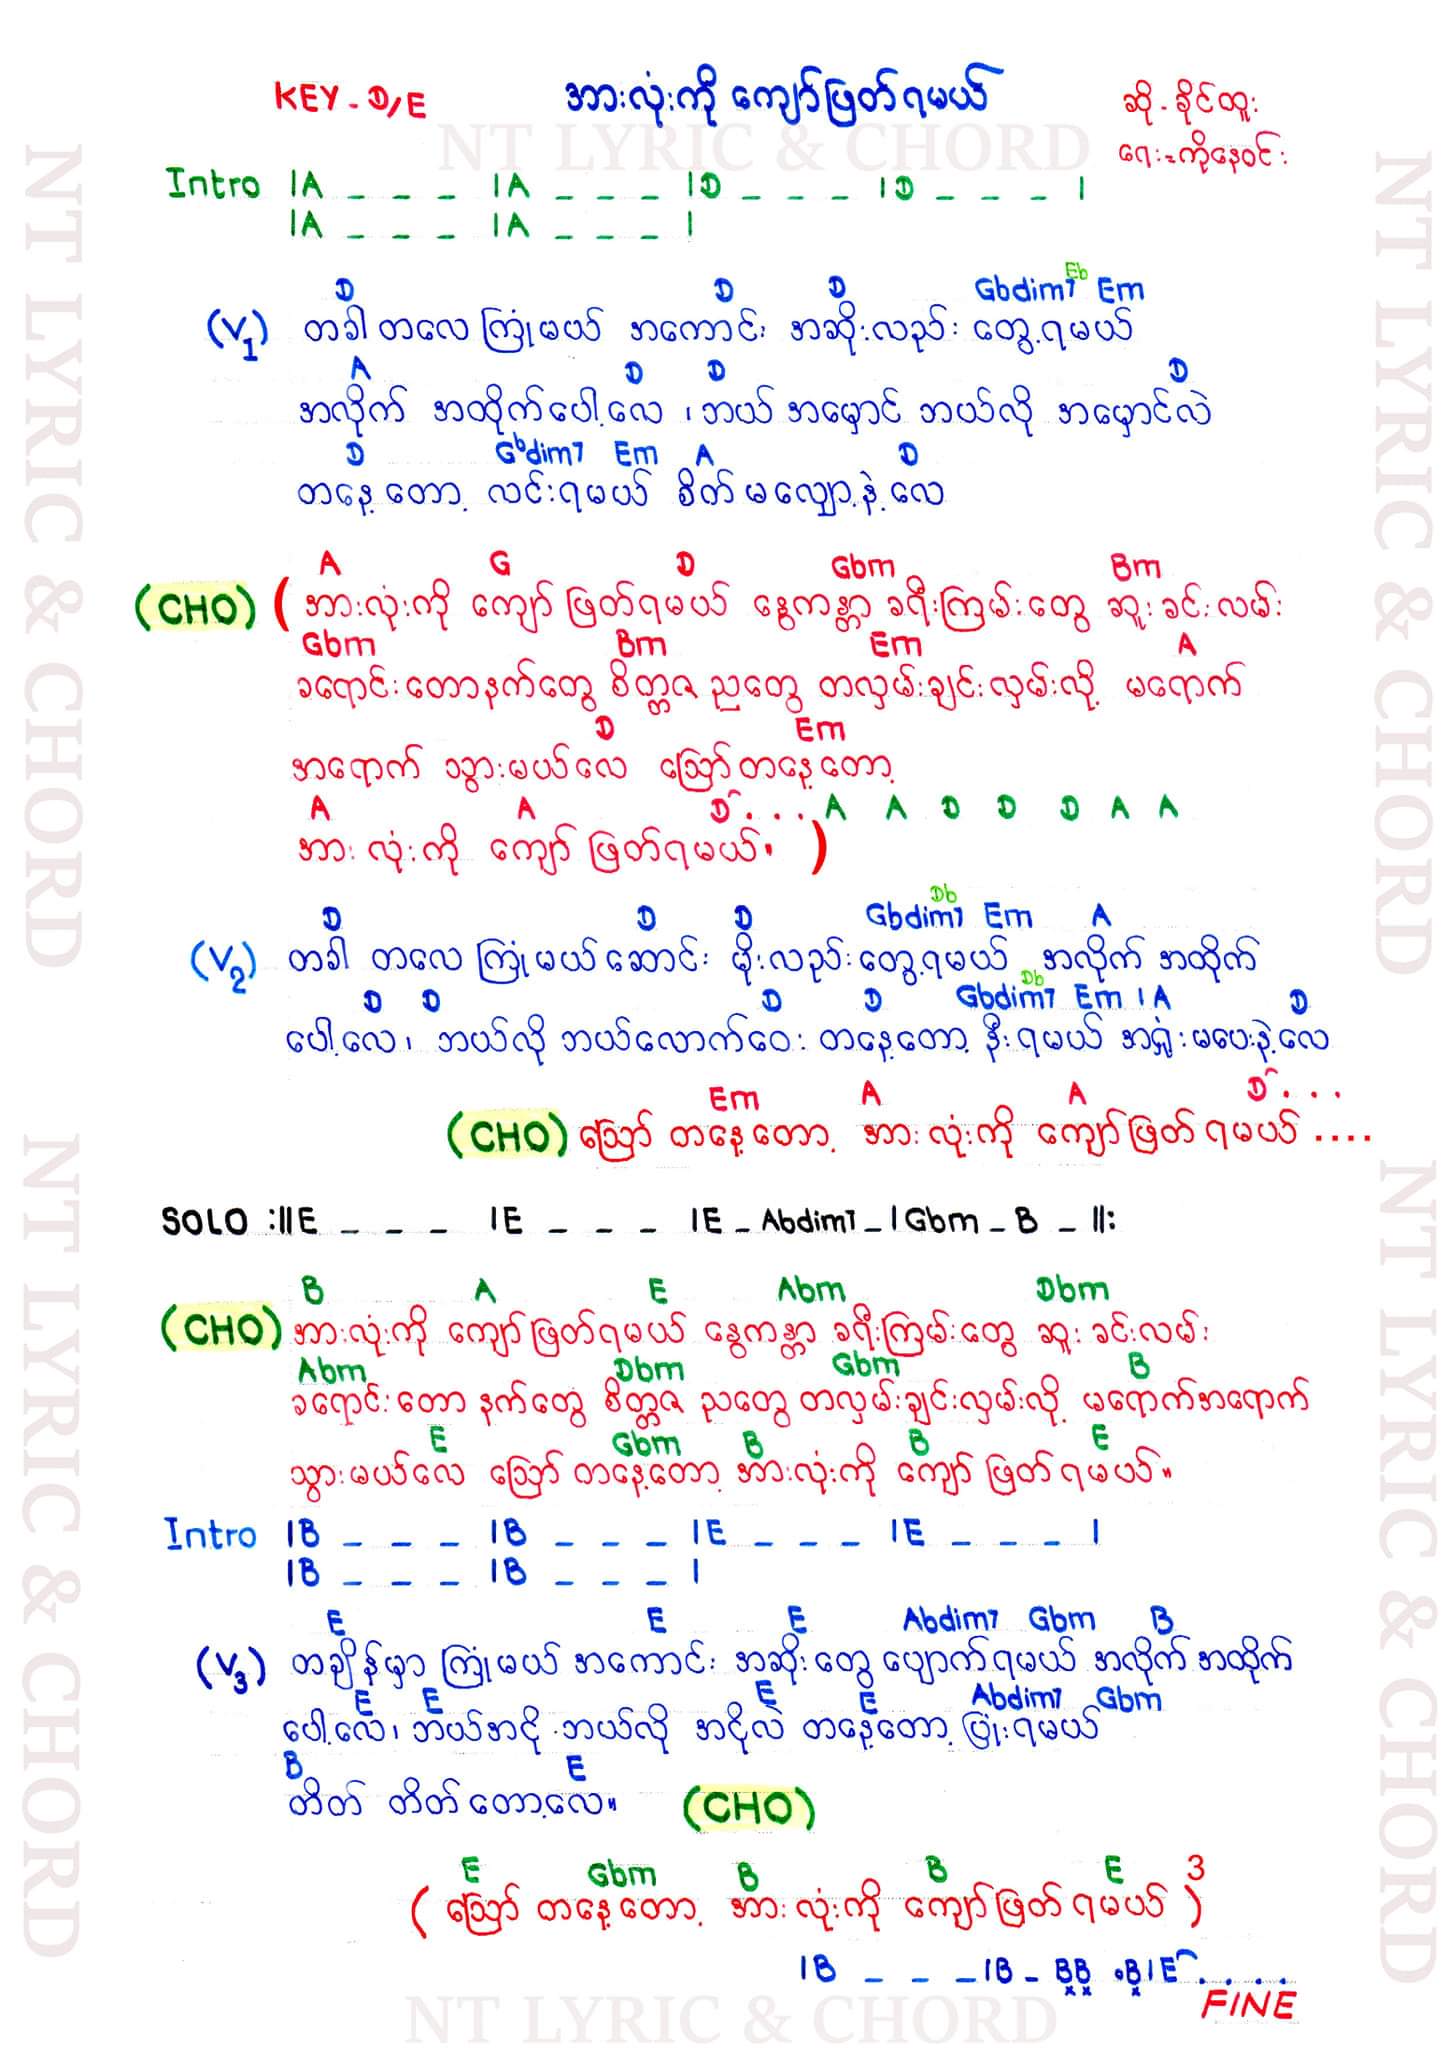 KEY - D/E အားလုံးကို ကျော်ဖြတ်ရမယ် ဆို - ခိုင်ထူး
ရေး = ကိုနေဝင်း
NT LYRIC & CHORD
Intro |A _ _ _ |A _ _ _ |D _ _ _ |D _ _ _ |
|A _ _ _ |A _ _ _ |
D D D Gbdim7 Eb Em
(V1) တခါ တလေ ကြုံမယ် အကောင်း အဆိုးလည်း တွေ့ရမယ်
A D D D
အလိုက် အထိုက်ပေါ့လေ ၊ ဘယ် အမှောင် ဘယ်လို အမှောင်လဲ
D Gbdim7 Em A D
တနေ့ တော့ လင်းရမယ် စိတ် မလျှော့နဲ့ လေ
A G D Gbm Bm
(CHO) ( အားလုံးကို ကျော် ဖြတ်ရမယ် နွေကန္တာ ခရီးကြမ်းတွေ ဆူး ခင်းလမ်း
Gbm Bm Em A
ချောင်းတောနက်တွေ စိတ္တဇ ညတွေ တလှမ်းချင်းလှမ်းလို့ မရောက်
D Em
အရောက် သွားမယ်လေ သြော် တနေ့တော့
A A D . . . A A D D D A A
အား လုံးကို ကျော် ဖြတ်ရမယ်။ )
D D D Gbdim7 Db Em A
(V2) တခါ တလေ ကြုံမယ် ဆောင်း မိုးလည်း တွေ့ရမယ် အလိုက် အထိုက်
D D D D Gbdim7 Db Em | A D
ပေါ့လေ ၊ ဘယ်လို ဘယ်လောက်ဝေး တနေ့တော့ နီးရမယ် အရှုံးမပေးနဲ့လေ
Em A A D . . .
(CHO) သြော် တနေ့တော့ အား လုံးကို ကျော်ဖြတ် ရမယ် ....
SOLO :||E _ _ _ |E _ _ _ |E _ Abdim7 _ | Gbm _ B _ ||:
B A E Abm Dbm
(CHO) အားလုံးကို ကျော်ဖြတ်ရမယ် နွေကန္တာ ခရီးကြမ်းတွေ ဆူး ခင်းလမ်း
Abm Dbm Gbm B
ချောင်းတော နက်တွေ စိတ္တဇ ညတွေ တလှမ်းချင်းလှမ်းလို့ မရောက်အရောက်
E Gbm B B E
သွားမယ်လေ သြော် တနေ့တော့ အားလုံးကို ကျော် ဖြတ်ရမယ်။
Intro |B _ _ _ |B _ _ _ |E _ _ _ |E _ _ _ |
|B _ _ _ |B _ _ _ |
E E E Abdim7 Gbm B
(V3) တချိန်မှာ ကြုံမယ် အကောင်း အဆိုးတွေ ပျောက်ရမယ် အလိုက် အထိုက်
E E E E Abdim7 Gbm
ပေါ့လေ ၊ ဘယ်အငို ဘယ်လို အငိုလဲ တနေ့တော့ ပြုံးရမယ်
B E
တိတ် တိတ် တော့လေ။ (CHO)
E Gbm B B E
( သြော် တနေ့တော့ အား လုံးကို ကျော်ဖြတ် ရမယ် )3
|B _ _ _ |B _ BB . B|E . . . .
FINE
NT LYRIC & CHORD
NT LYRIC & CHORD
NT LYRIC & CHORD
NT LYRIC & CHORD
NT LYRIC & CHORD